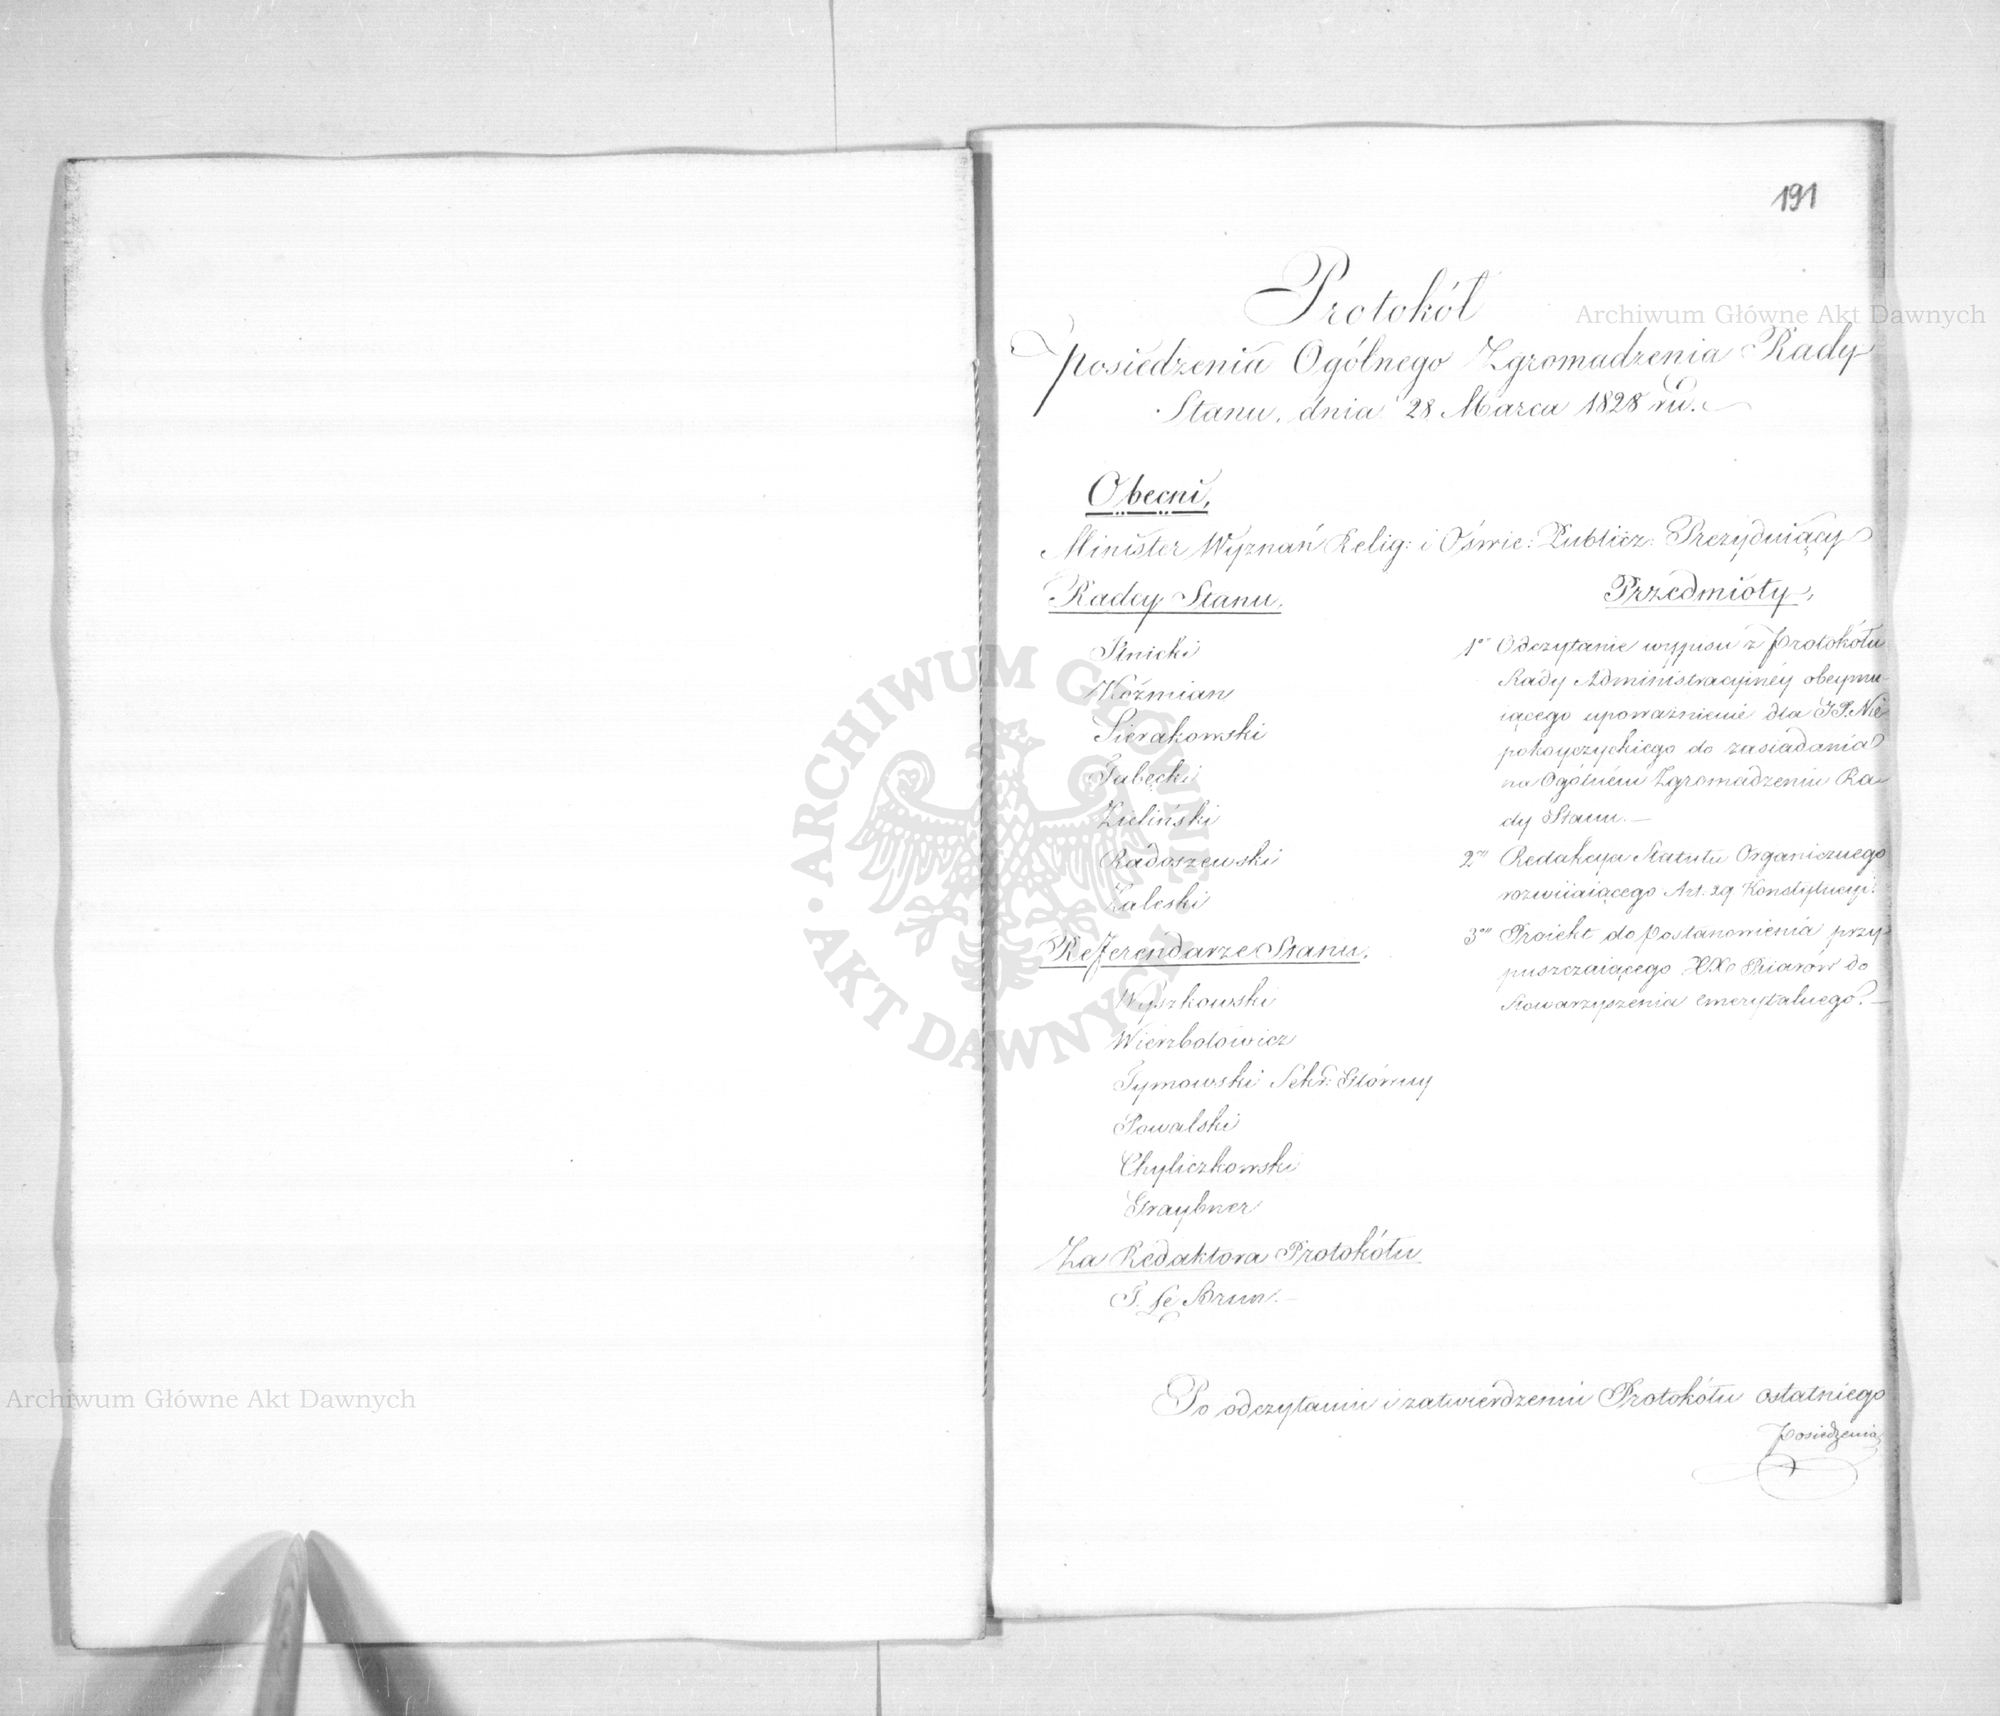 191
Protokół
posiedzenia Ogólnego Zgromadzenia Rady
Stanu, dnia 28 Marca 1828 ru.
Obecni,
Minister Wyznań Relig: i Oświe: Publicz: Prezyduiący
Radcy Stanu.
Koźmian
Sierakowski
Zieliński
Radoszewski
Zaleski
Referendarze Stanu.
Wyszkowski
Wierzbołowicz
Tymowski Sekr: Główny
Chyliczkowski
Graybner
Za Redaktora Protokółu
Le Brun.
Przedmioty,
1o Odczytanie wypisu z Protokółu
Rady Administracyinéy obeymu-
iącego upoważnienie dla JP. Nie
pokoyczyckiego do zasiadania
na Ogólném Zgromadzeniu Ra-
dy Stanu.—
2o Redakcya Statutu Organicznego
rozwiiaiącego Art. 29 Konstytucyi.
3o Proiekt do Postanowienia przy-
puszczaiącego XX. Piiarów do
Stowarzyszenia emerytalnego.—
Po odczytaniu i zatwierdzeniu Protokółu ostatniego
Posiedzenia
Archiwum Główne Akt Dawnych
Archiwum Główne Akt Dawnych
ARCHIWUM GŁÓWNE
AKT DAWNYCH